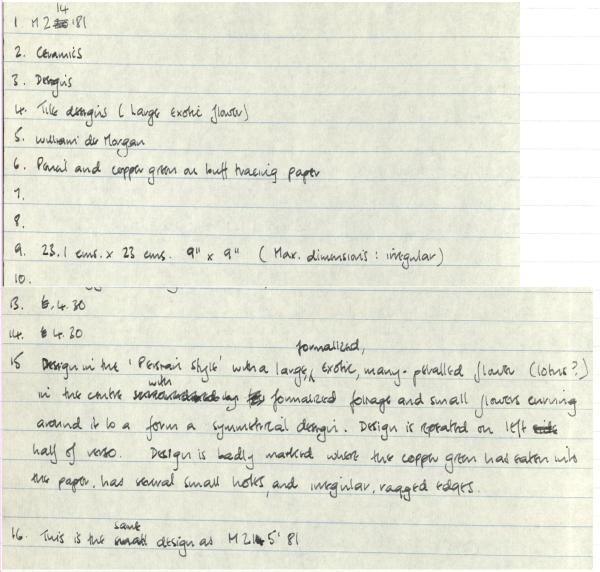 14
1. M 2 '81
2. Ceramics
3. Designs
4. Tile designs (Large exotic flower)
5. William de Morgan
6. Pencil and copper green on buff tracing paper
7.
8.
9. 23.1 cms. x 23 cms. 9" x 9" (Max. dimensions : irregular)
10.
13. £4.30
14. £4.30
formalized,
15 Design in the 'Persian style' with a large, exotic, many-petalled flower (lotus?)
with
in the centre formalized foliage and small flowers curving
around it to a form a symmetrical design. Design is repeated on left
half of verso. Design is badly marked where the copper green has eaten into
the paper, has several small holes, and irregular, ragged edges.
same
16. This is the design as M 215'81